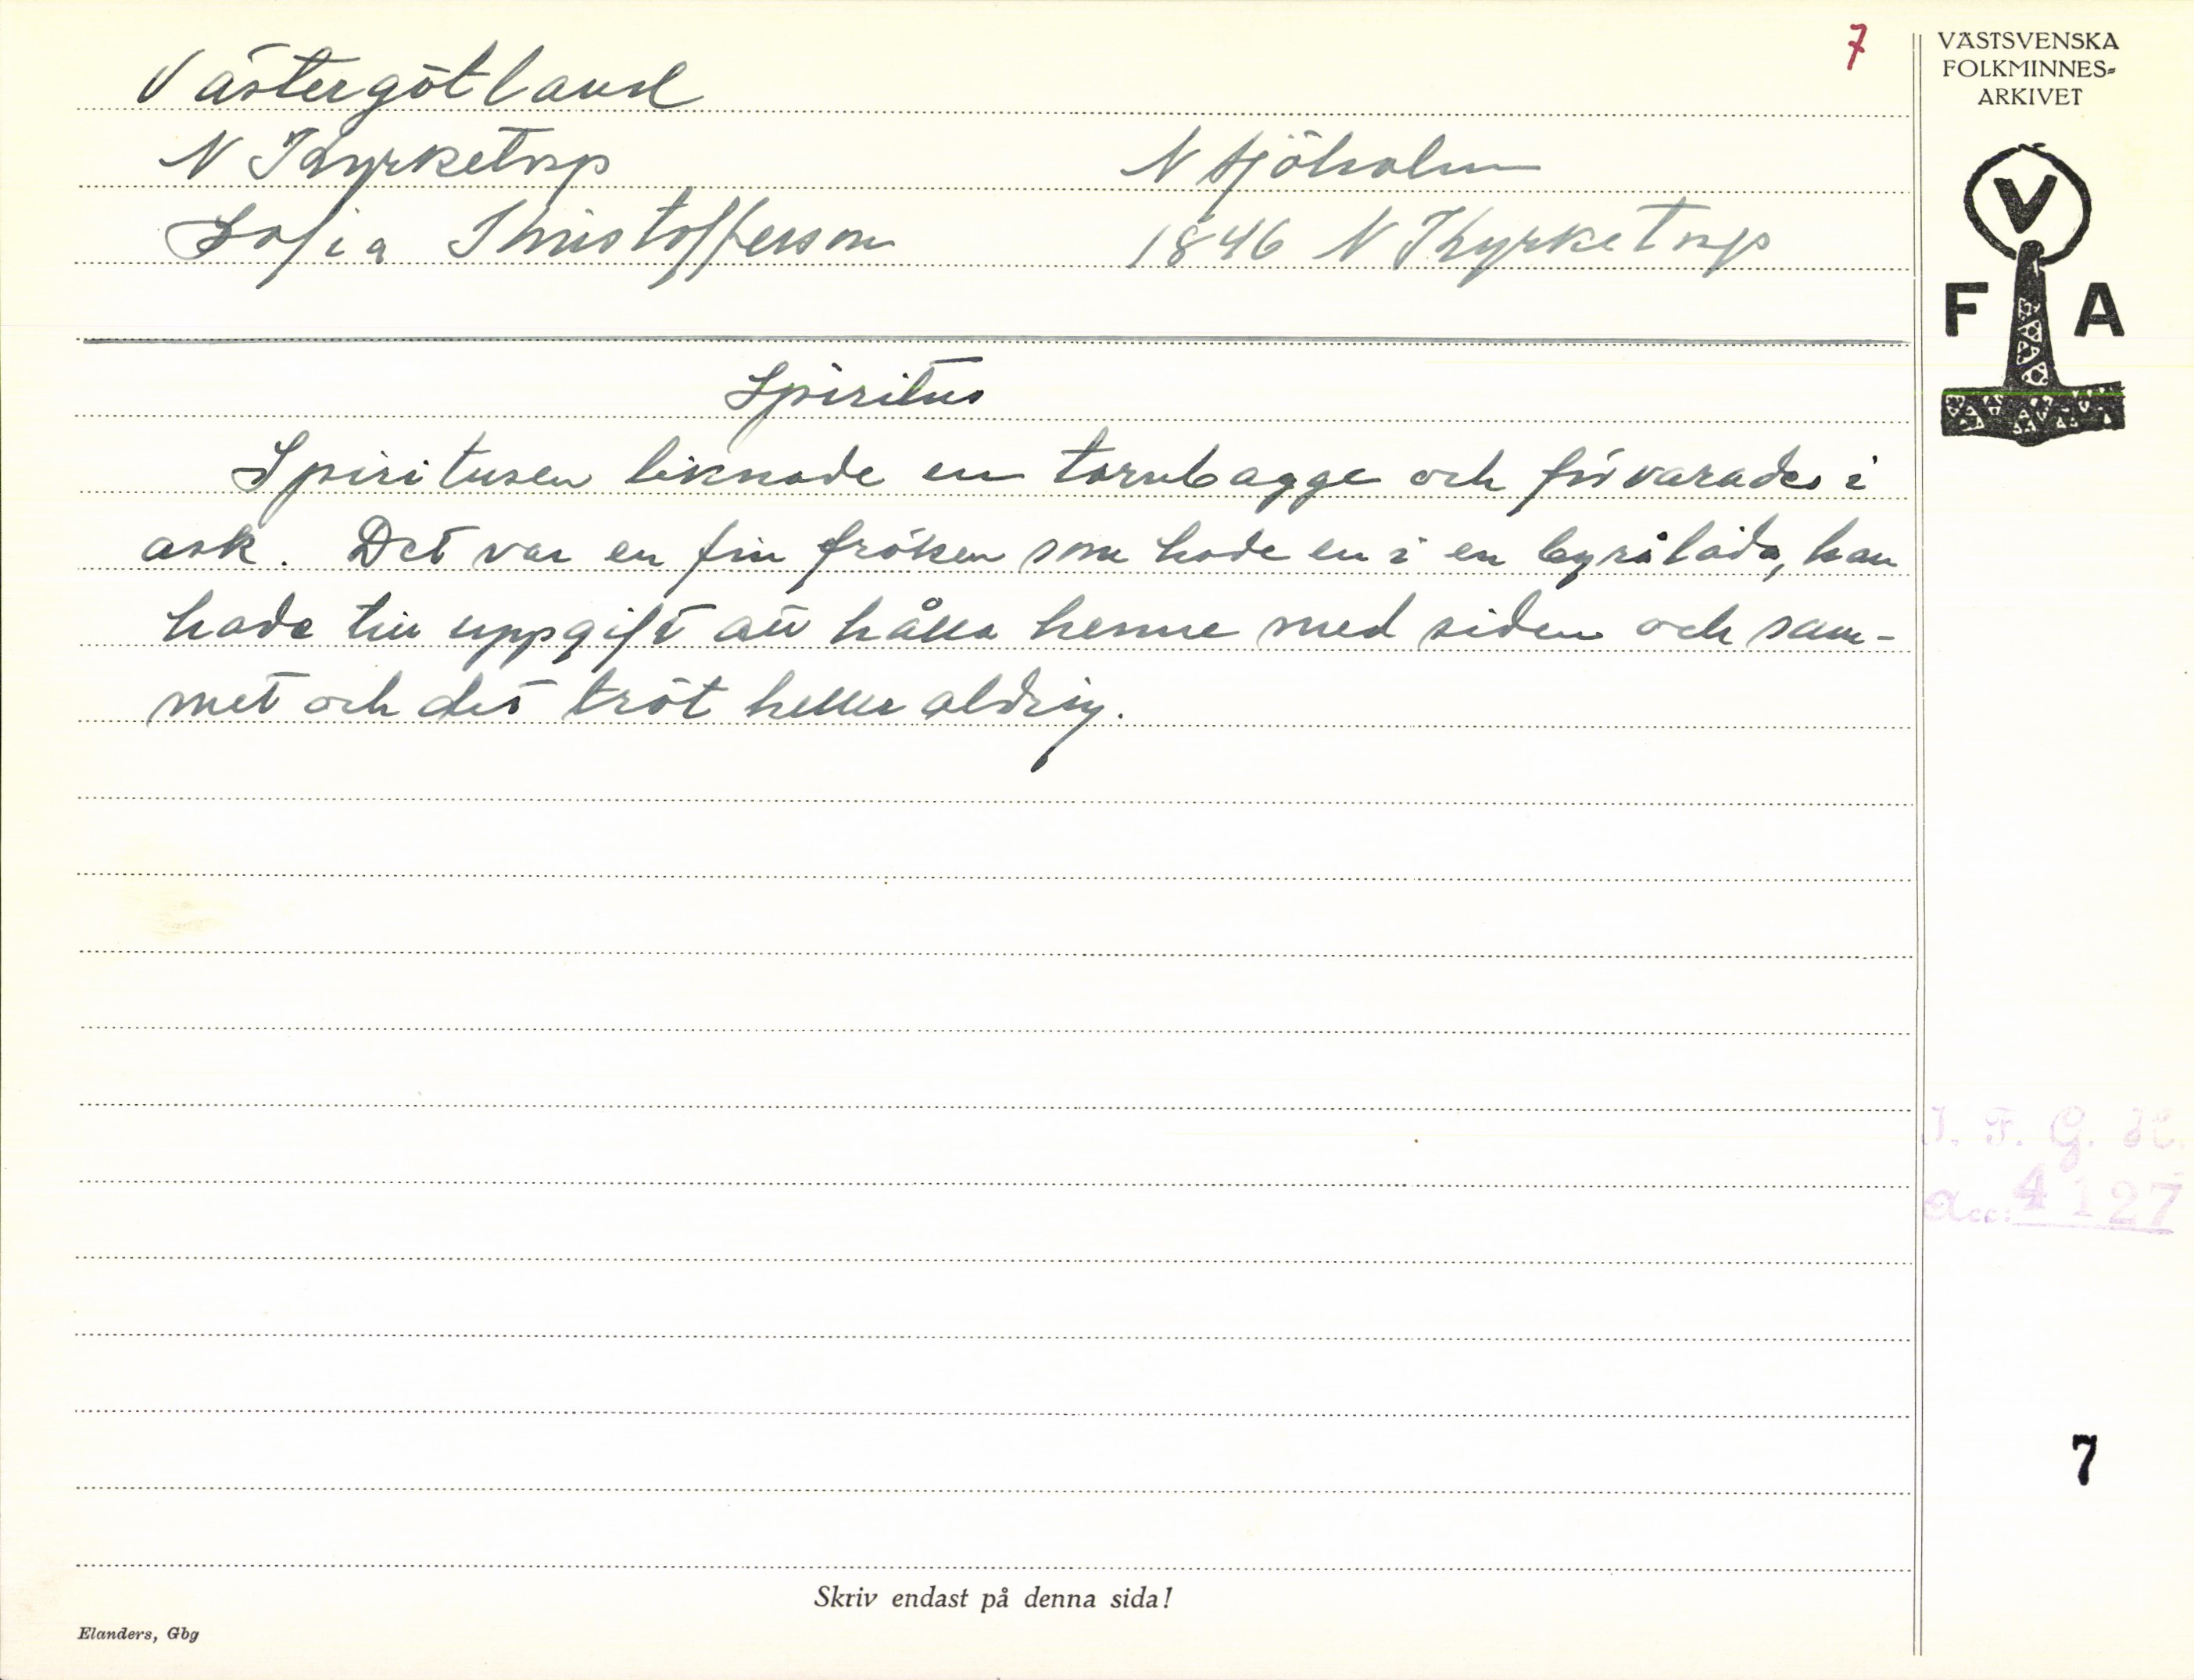 7
VÄSTSVENSKA
FOLKMINNES-
ARKIVET
V
F A
Västergötland
N Kyrketorp N Sjöholm
Sofia Kristofferson 1846 N Kyrketorp
Spiritus
Spiritusen liknade en tornbagge och förvarades i
ask. Det var en fin fröken som hade en i en byrålåda, han
hade till uppgift att hålla henne med siden och sam-
met och det tröt heller aldrig.
I. F. G. H.
Acc. 4127
7
Skriv endast på denna sida!
Elanders, Gbg